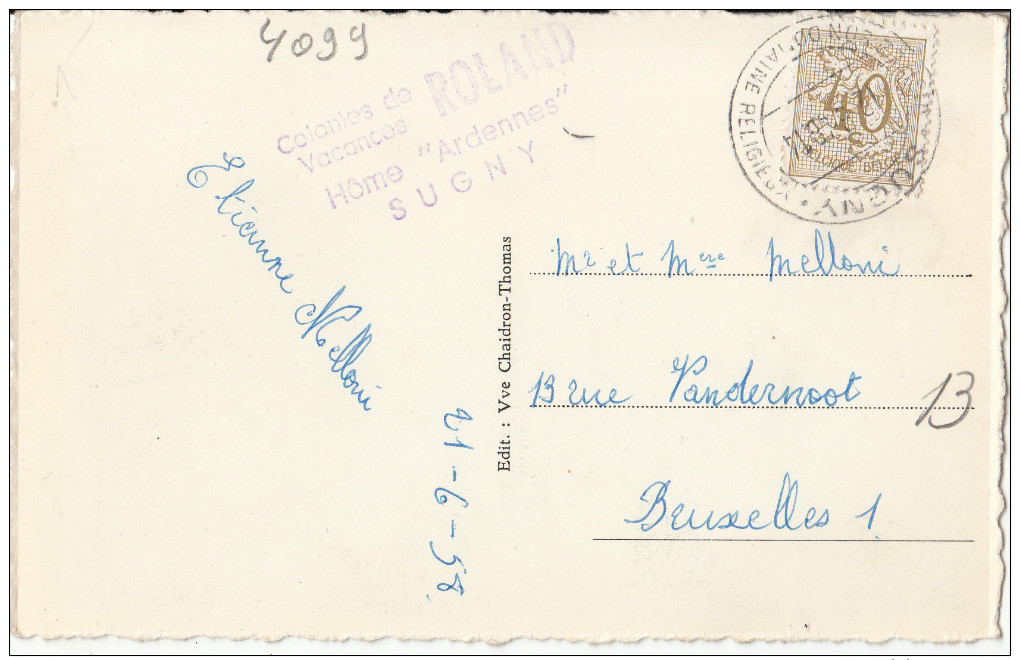 4099
Colonies de
Vacances ROLAND
Hôme "Ardennes"
SUGNY
40
BELGIQUE BELGIE
SUGNY
RELIGIEUX
Etienne Melloni
21-6-58
Edit. : Vve Chaidron-Thomas
Mr et Mere Melloni
13 rue Vandernoot
B
Bruxelles 1